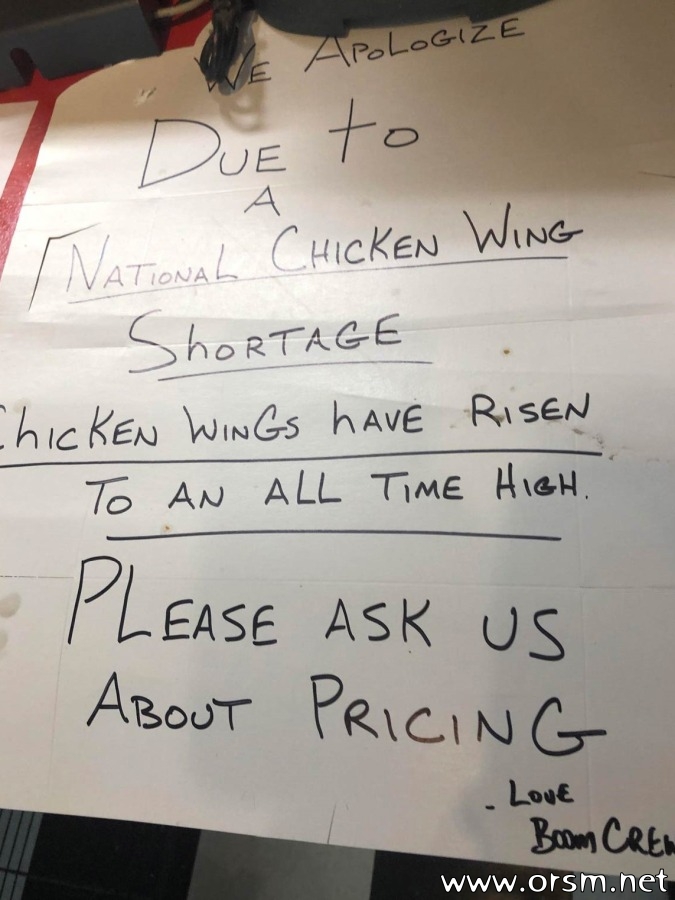 We Apologize
Due to
A
National Chicken Wing
Shortage
Chicken Wings have Risen
To an all time high.
Please ask us
About Pricing
- Love
Boom Crew
www.orsm.net